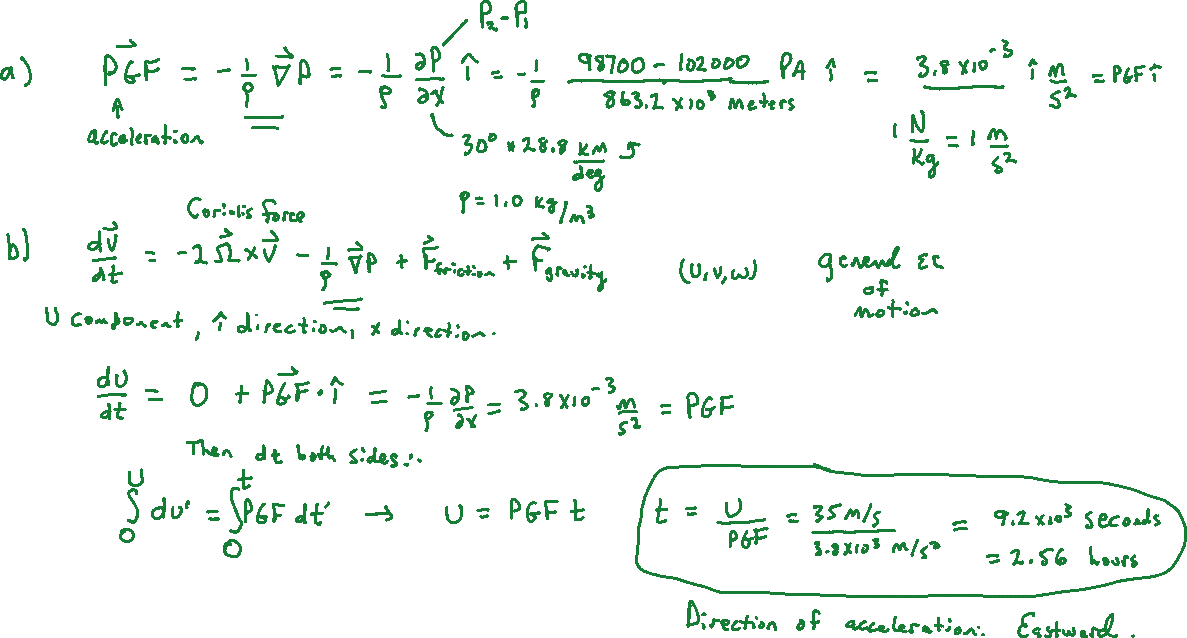 P₂-P₁
a) PGF⃗ = -1/ρ ∇⃗P = -1/ρ ∂P/∂x î = -1/ρ (98700 - 102000)/(863.2 x 10³ meters) PA î = 3.8 x 10⁻³ î m/s² = PGF î
acceleration
30° * 28.8 km/deg
1 N/kg = 1 m/s²
ρ = 1.0 kg/m³
Coriolis force
b) dv⃗/dt = -2Ω⃗ x V⃗ - 1/ρ ∇⃗P + F⃗friction + F⃗gravity (U, v, w) general EC
of
motion
U component, î direction, x direction.
dU/dt = 0 + PGF⃗ · î = -1/ρ ∂P/∂x = 3.8 x 10⁻³ m/s² = PGF
Then dt both sides:.
∫₀ᵁ du' = ∫₀ᵗ PGF dt' → U = PGF t
t = U/PGF = (35 m/s)/(3.8 x 10³ m/s²) = 9.2 x 10³ seconds
= 2.56 hours
Direction of acceleration: Eastward.